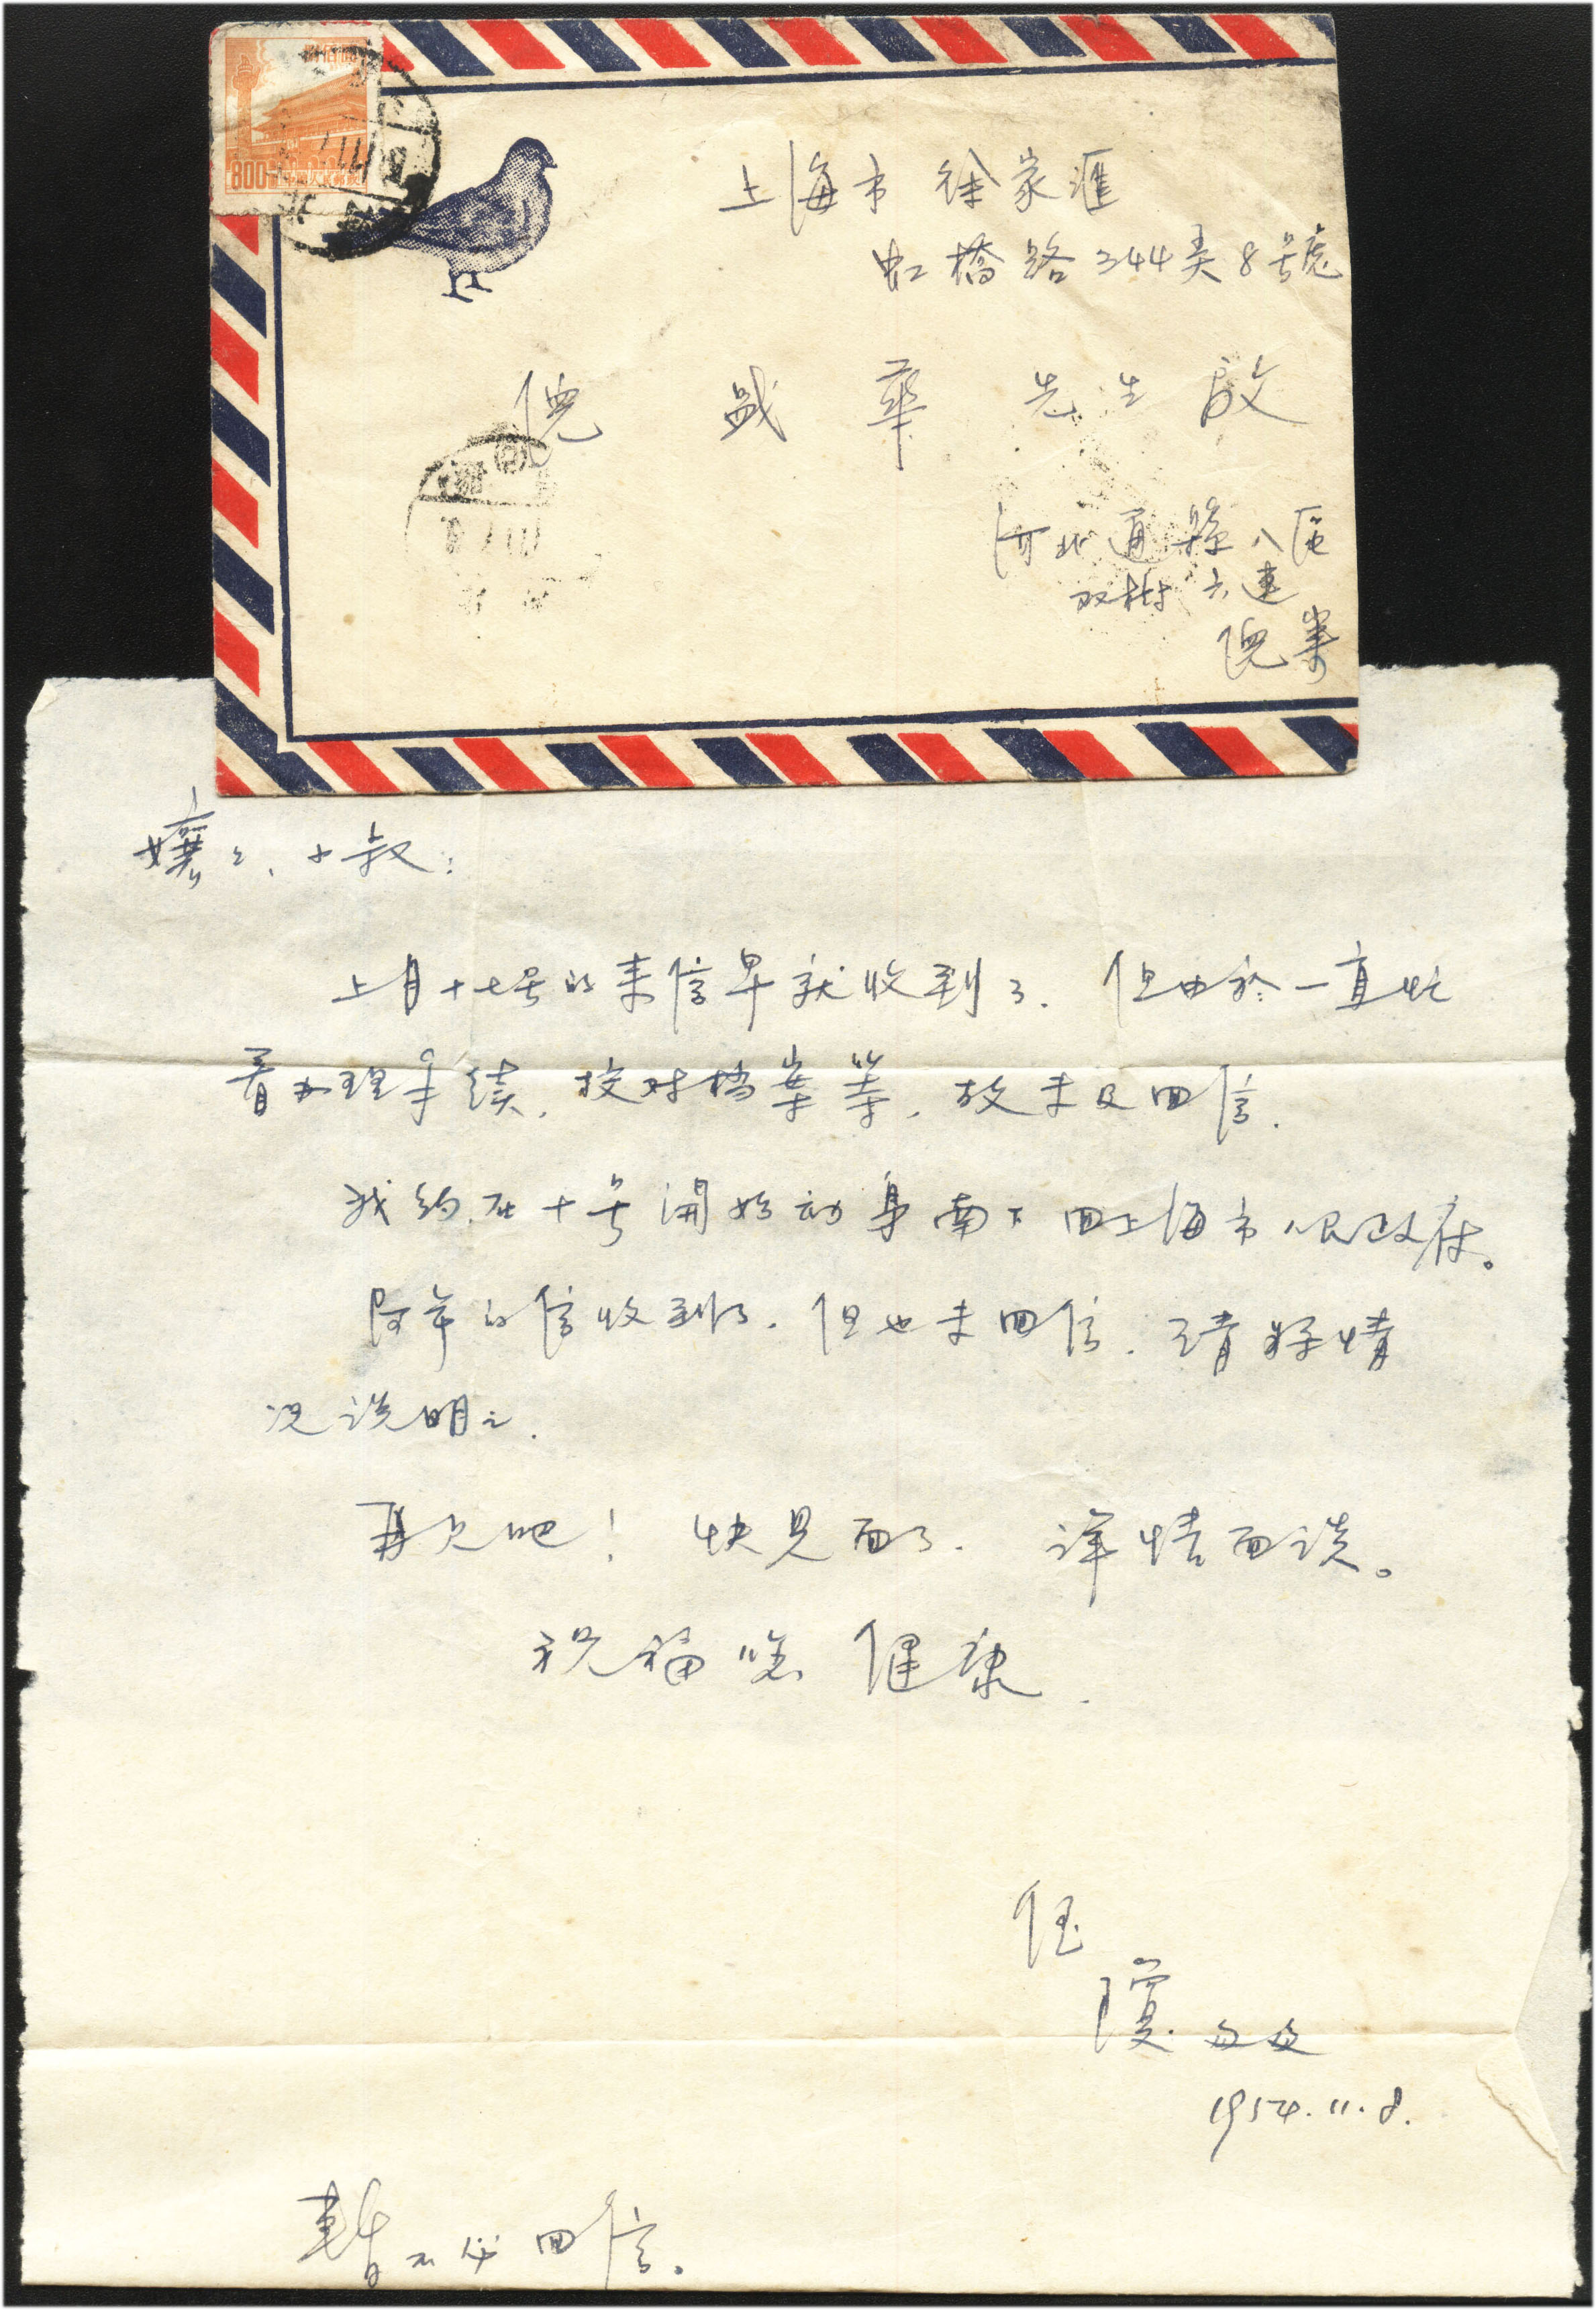 800
上海市徐家滙
虹橋路344弄8號
倪 華 先生 啟
河北通縣八區
双樹六連
倪
孃々、小叔:
上月十七号的来信早就收到了. 但由於一直忙
着办理手续, 校对档案等, 故未及回信.
我约在十号開始动身南下回上海市人民政府。
阿年的信收到了. 但也未回信. 请将情
况说明之.
再見吧! 快見面了. 详情面谈。
祝福您 健康.
侄
瓊
1954.11.8.
暫不必回信。